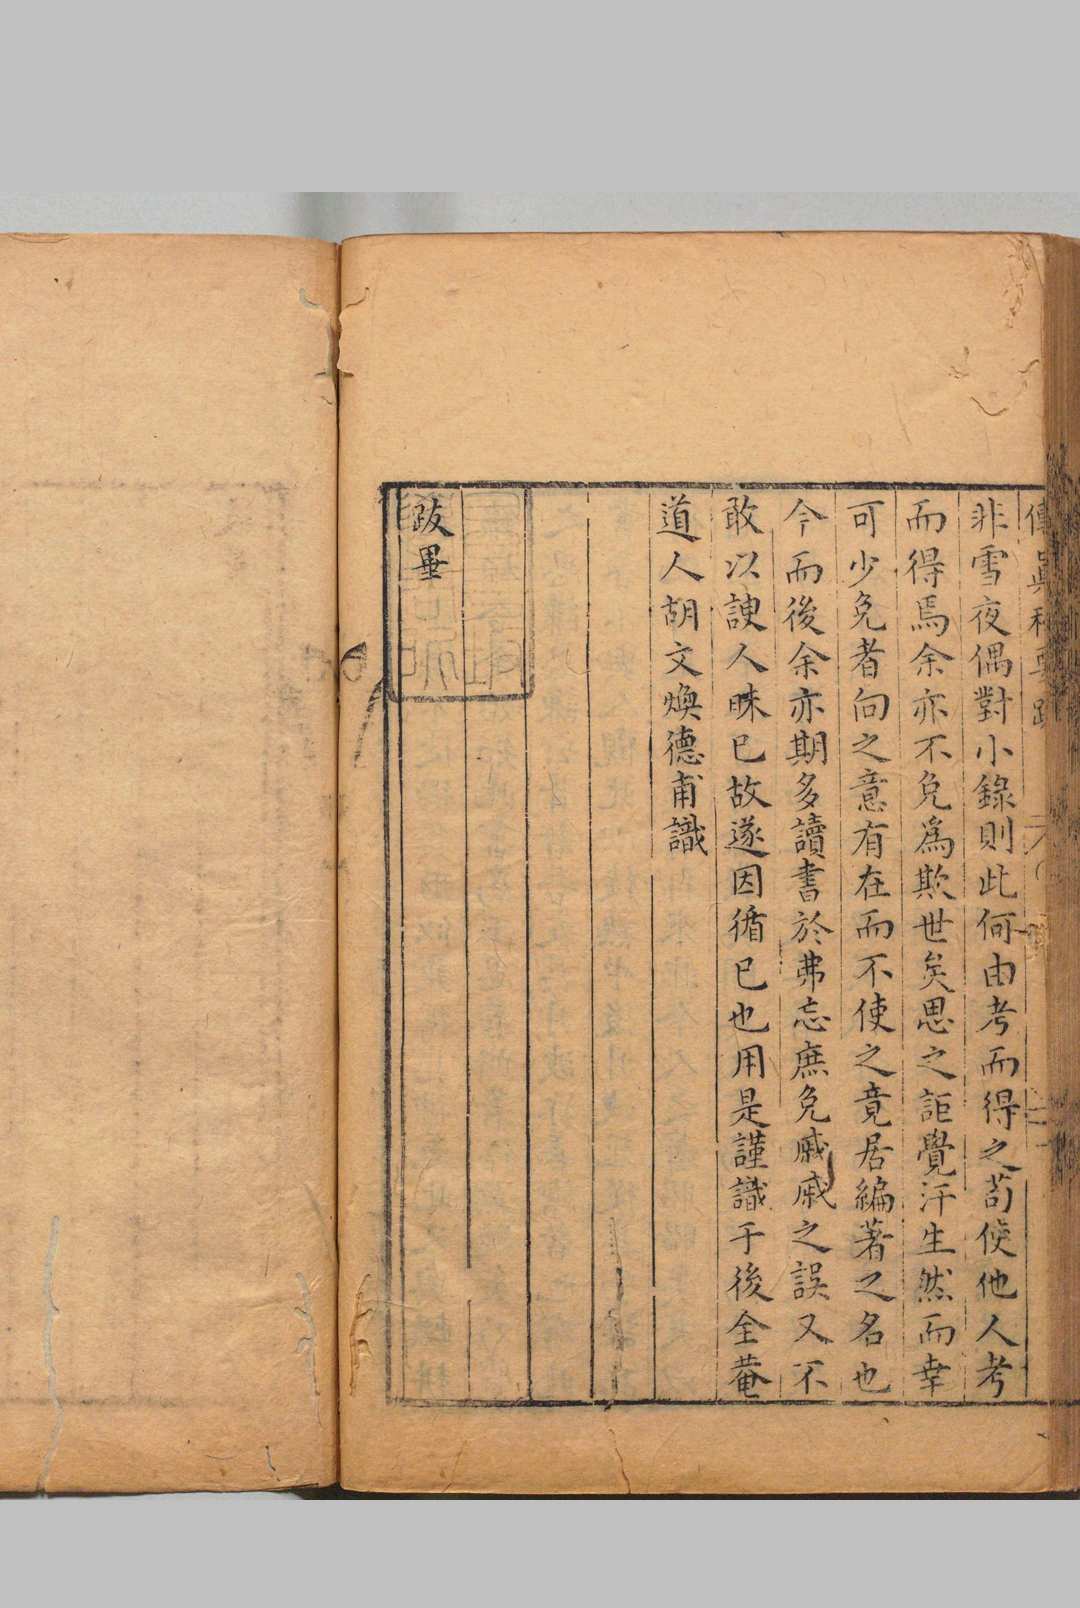 傳真秘要跋
非雪夜偶對小錄則此何由考而得之苟使他人考
而得焉余亦不免爲欺世矣思之詎覺汗生然而幸
可少免者向之意有在而不使之竟居編著之名也
今而後余亦期多讀書於弗忘庶免戚戚之誤又不
敢以諛人昧已故遂因循已也用是謹識于後全菴
道人胡文煥德甫識
跋畢